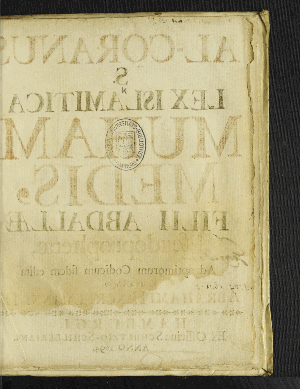 AL-CORANUS
S.
LEX ISLAMITICA
MUHAM-
MEDIS,
FILII ABDALLÆ
Pseudoprophetæ,
Ad optimorum Codicum fidem edita
HAMBURGI,
Ex Officina SCHULTZIO-SCHILLERIANA
ANNO 1694.